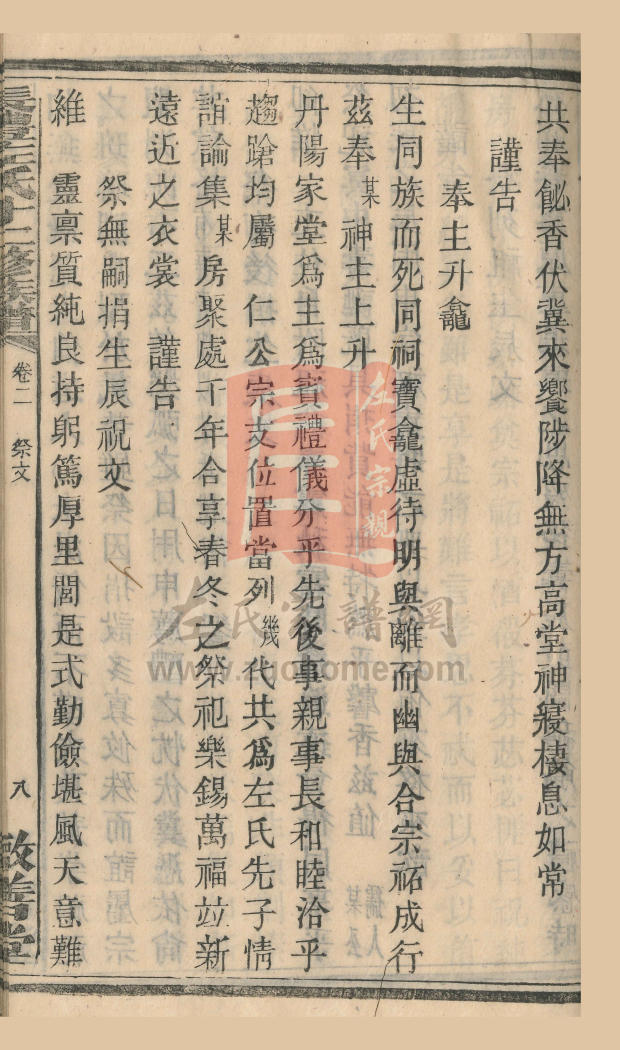 共奉飶香伏冀來饗陟降無方高堂神寢棲息如常
謹告
奉主升龕
生同族而死同祠寶龕虛待明與離而幽與合宗祏成行
茲奉某神主上升
丹陽家堂爲主爲賓禮儀分乎先後事親事長和睦洽乎
趨蹌均屬 仁公宗支位置當列幾代共爲左氏先子情
誼論集某房聚處千年合享春冬之祭祀樂錫萬福竝新
遠近之衣裳 謹告
祭無嗣捐生辰祝文
維 靈稟質純良持躬篤厚里閭是式勤儉堪風天意難
長澧左氏十二修族譜
卷二 祭文
八
敬善堂
左氏宗親
左氏家譜網
www.zgzphome.com